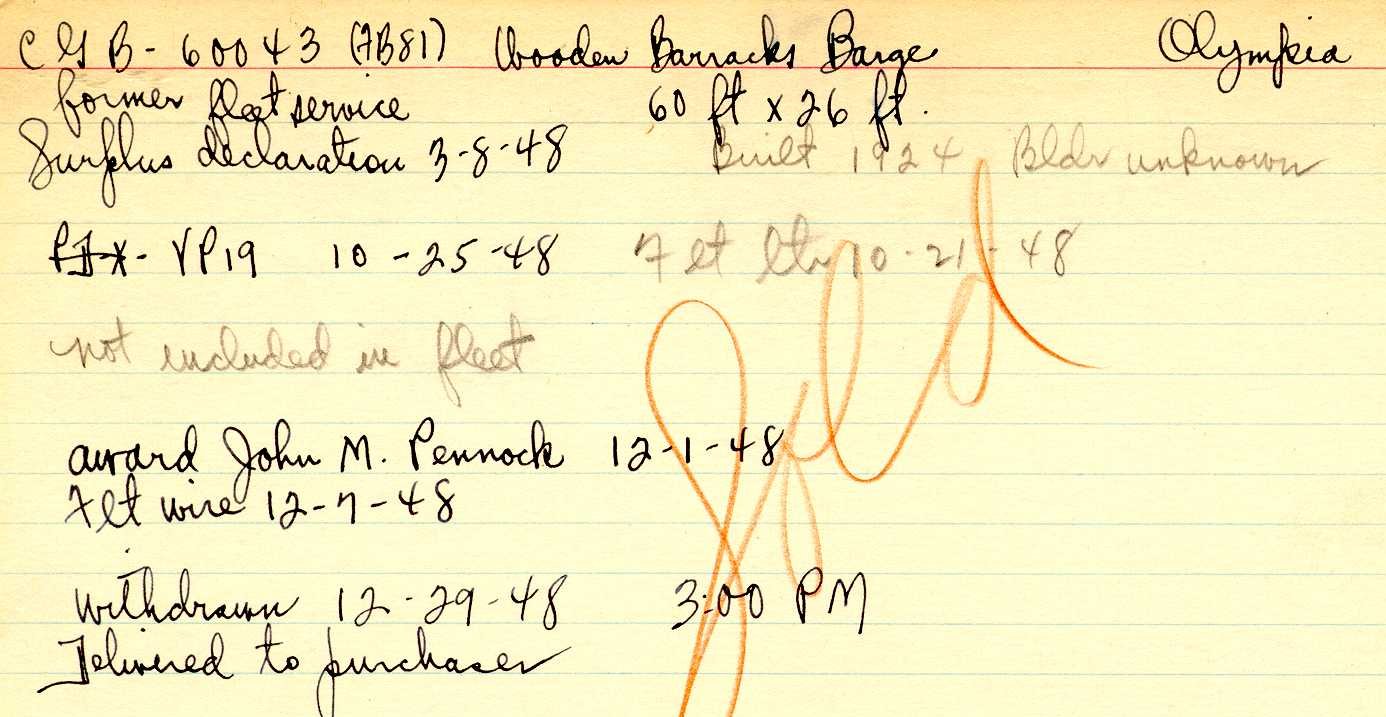 CGB-60043 (7B81) Wooden Barracks Barge Olympia
former fleet service 60 ft x 26 ft.
Surplus declaration 3-8-48 Built 1924 Bldr unknown
VP19 10-25-48 Flt ltr 10-21-48
not included in fleet
Sold
award John M. Pennock 12-1-48
Flt wire 12-7-48
withdrawn 12-29-48 3:00 PM
Delivered to purchaser